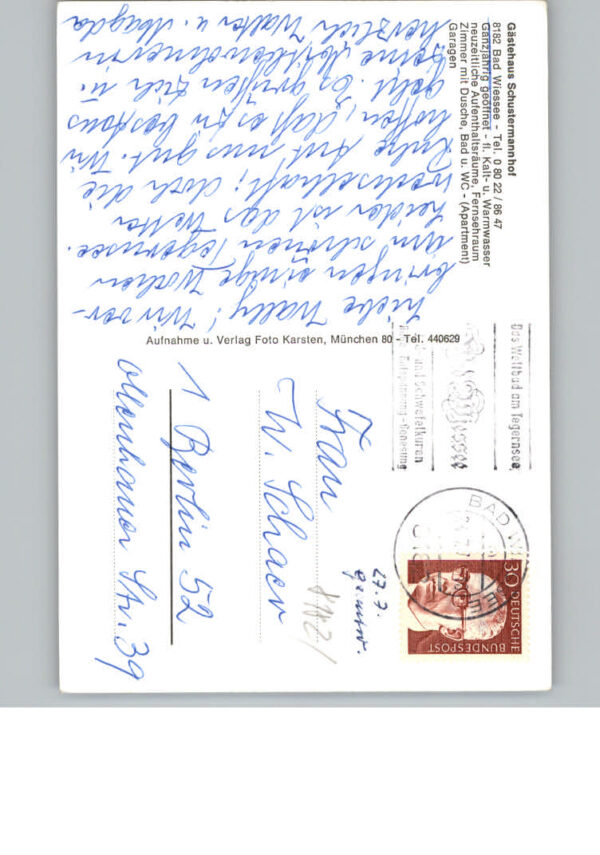 Gästehaus Schustermannhof
8182 Bad Wiessee - Tel. 0 80 22 / 86 47
Ganzjährig geöffnet - fl. Kalt- u. Warmwasser
neuzeitliche Aufenthaltsräume, Fernsehraum
Zimmer mit Dusche, Bad u. WC - (Apartment)
Garagen
Liebe Wally! Wir ver-
bringen einige Wochen
am schönen Tegernsee.
Leider ist das Wetter
wechselhaft; doch die
Ruhe tut uns gut. Wir
hoffen, daß es Dir
geht. Es grüßen Dich u.
Deine
herzlich Walter u. Magda
Aufnahme u. Verlag Foto Karsten, München 80 - Tel. 440629
Das Weltbad am Tegernsee
Wiessee
und Schwefelkuren
Entspannung - Genesung
BAD WIESSEE
30 DEUTSCHE
BUNDESPOST
27.7.
Frau
W. Schaer
1 Berlin 52
Ollenhauer Str. 39